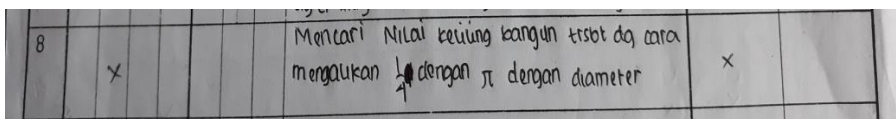 8
x
Mencari Nilai keliling bangun trsbt dg cara
mengalikan 1/4 dengan π dengan diameter
x